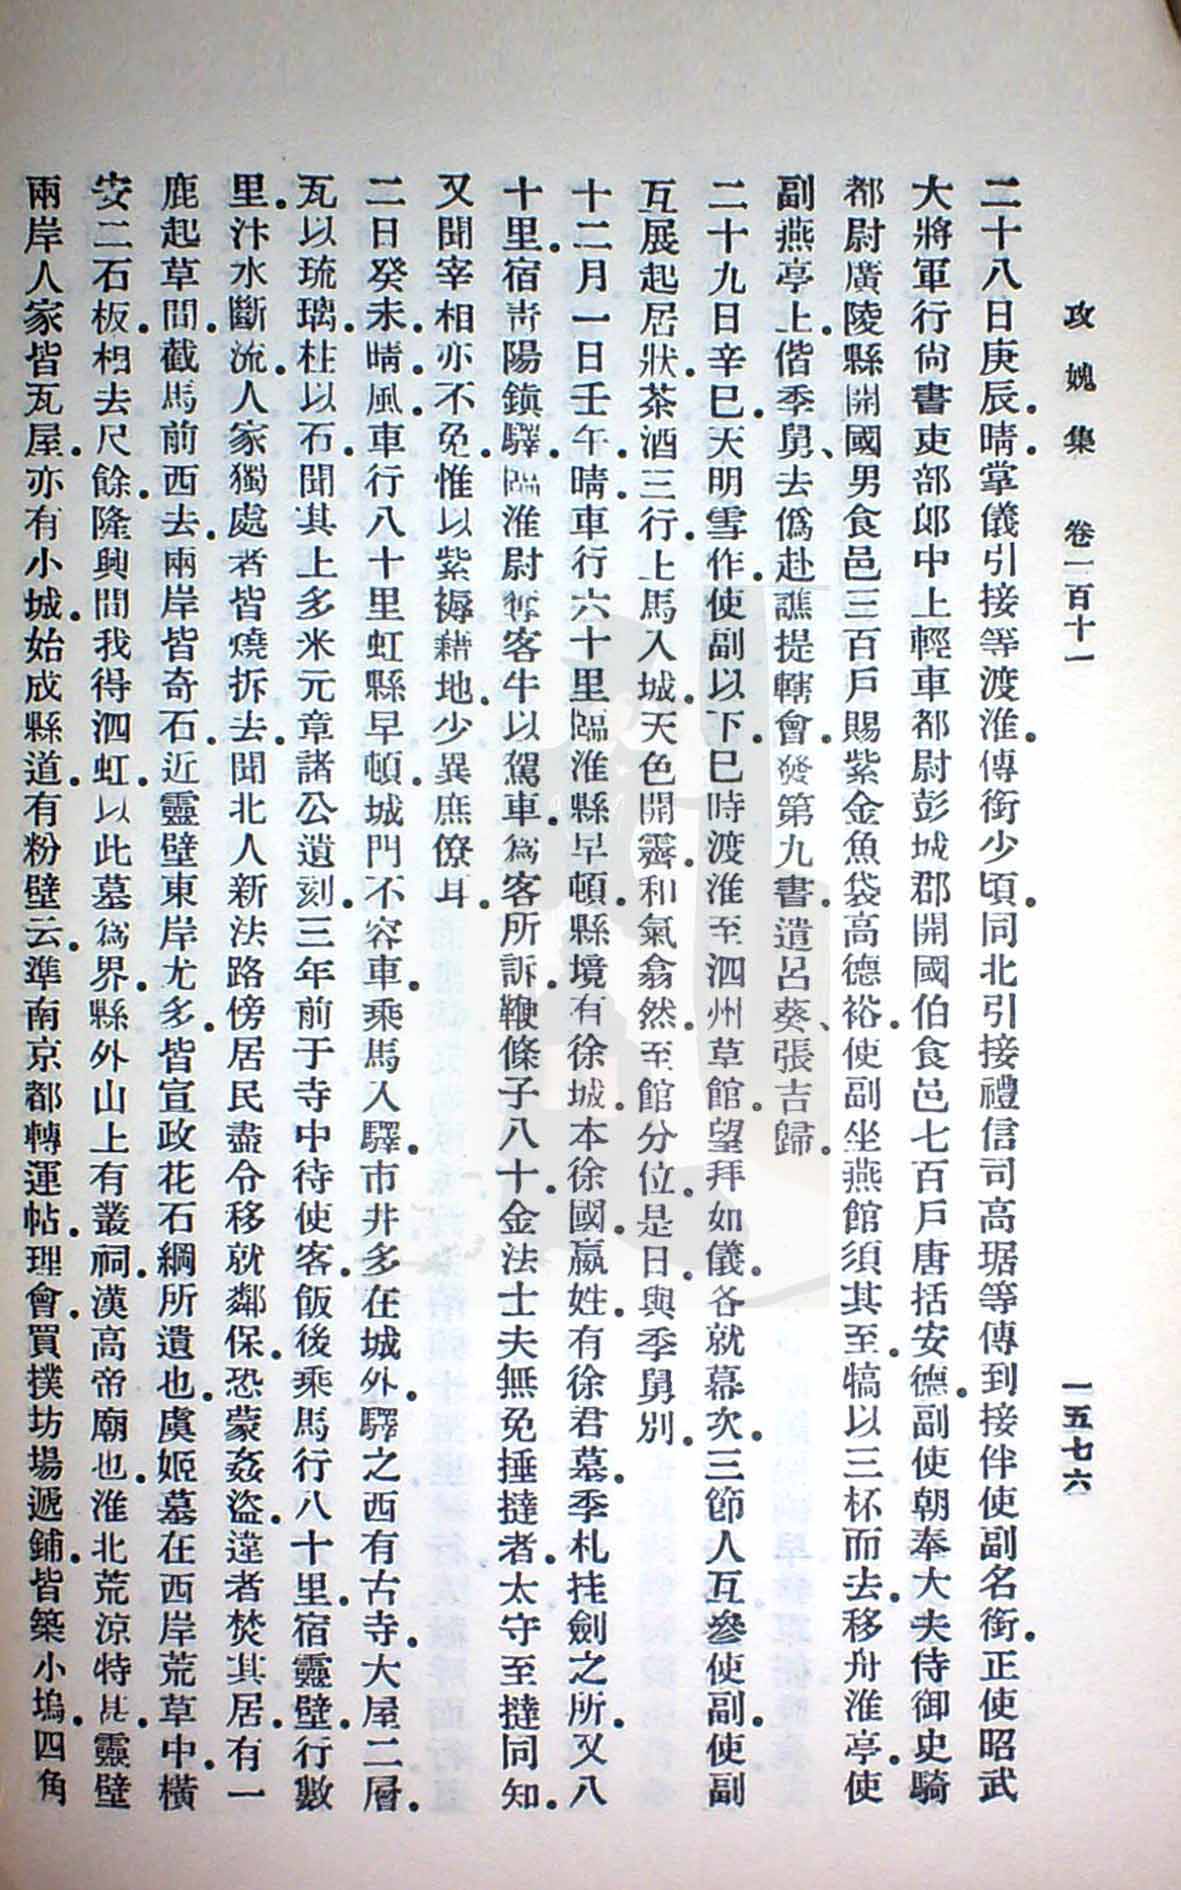 攻媿集　卷一百十一　一五七六
二十八日庚辰。晴掌儀引接等渡淮。傳銜少頃。同北引接禮信司高琚等傳到接伴使副名銜。正使昭武
大將軍行尙書吏部郞中上輕車都尉彭城郡開國伯食邑七百戶唐括安德。副使朝奉大夫侍御史騎
都尉廣陵縣開國男食邑三百戶賜紫金魚袋高德裕。使副坐燕館須其至。犒以三杯而去。移舟淮亭。使
副燕亭上。偕季舅、去僞赴譙提轄會。發第九書。遺呂葵、張吉歸。
二十九日辛巳。天明雪作。使副以下。巳時渡淮至泗州草館。望拜如儀。各就幕次。三節人互參使副。使副
互展起居狀。茶酒三行。上馬入城。天色開霽。和氣翕然。至館分位。是日。與季舅別。
十二月一日壬午。晴。車行六十里臨淮縣早頓。縣境有徐城。本徐國。嬴姓。有徐君墓。季札挂劍之所。又八
十里。宿靑陽鎭驛。臨淮尉奪客牛以駕車。爲客所訴。鞭條子八十。金法士夫無免捶撻者。太守至撻同知。
又聞宰相亦不免。惟以紫褥藉地。少異庶僚耳。
二日癸未。晴。風。車行八十里虹縣早頓。城門不容車。乘馬入驛。市井多在城外。驛之西有古寺。大屋二層。
瓦以琉璃。柱以石。聞其上多米元章諸公遺刻。三年前于寺中待使客。飯後乘馬行八十里。宿靈壁。行數
里。汴水斷流。人家獨處者皆燒拆去。聞北人新法路傍居民盡令移就鄰保。恐蒙姦盜。違者焚其居。有一
鹿起草間。截馬前西去。兩岸皆奇石。近靈壁東岸尤多。皆宣政花石綱所遺也。虞姬墓在西岸荒草中。橫
安二石板。相去尺餘。隆興間我得泗虹。以此墓爲界。縣外山上有叢祠。漢高帝廟也。淮北荒涼特甚。靈壁
兩岸人家皆瓦屋。亦有小城。始成縣道。有粉壁云。準南京都轉運帖。理會。買撲坊場遞鋪。皆築小塢。四角